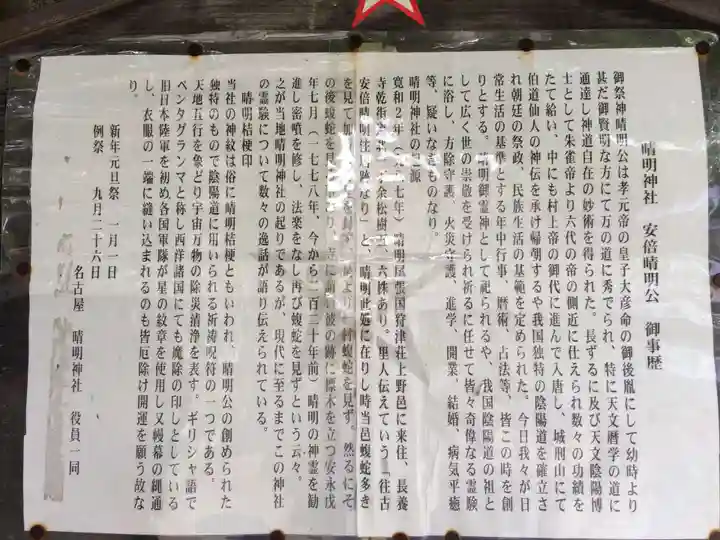 晴明神社 安倍晴明公 御事歴
御祭神晴明公は孝元帝の皇子大彦命の御後胤にして幼時より
甚だ御賢明な方にて万の道に秀でられ、特に天文暦学の道に
通達し神道自在の妙術を得られた。長ずるに及び天文陰陽博
士として朱雀帝より六代の帝の側近に仕えられ数々の功績を
たて給い、中にも村上帝の御代に進んで入唐し、城刑山にて
伯道仙人の神伝を承け帰朝するや我国独特の陰陽道を確立さ
れ朝廷の祭政、民族生活の基範を定められた。今日我々が日
常生活の基準とする年中行事、暦術、占法等、皆この時を創
りとする。晴明御霊神として祀られるや、我国陰陽道の祖と
して広く世の崇敬を受けられ祈るに任せて皆々奇偉なる霊験
に浴し、方除守護、火災守護、進学、開業、結婚、病気平癒
等、疑いなきものなり。
晴明神社の起源
寛和2年(九 七年)晴明尾張国狩津荘上野邑に来住、長養
寺乾街 余松樹五、六株あり。里人伝えていう「往古
安倍晴明住し跡なり」と、晴明此処に在りし時当邑蝮蛇多き
を見て加 より 蝮蛇を見ず。然るにそ
の後蝮蛇を見 彼の跡に標木を立つ安永戊
年七月(一七七八年、今から二百二十年前)晴明の神霊を勧
進し密噴を修し、法楽をなし再び蝮蛇を見ずという云々。
之が当地晴明神社の起りであるが、現代に至るまでこの神社
の霊験について数々の逸話が語り伝えられている。
晴明桔梗印
当社の神紋は俗に晴明桔梗ともいわれ、晴明公の創められた
独特のもので陰陽道に用いられる祈祷呪符の一つである。
天地五行を象どり宇宙万物の除災清浄を表す。ギリシャ語で
ペンタグランマと称し西洋諸国にても魔除の印しとしている
旧日本陸軍を初め各国軍隊が星の紋章を使用し又幔幕の縄通
し、衣服の一端に縫い込まれるのも皆厄除け開運を願う故な
り。
新年元旦祭 一月一日
例祭 九月二十六日
名古屋 晴明神社 役員一同